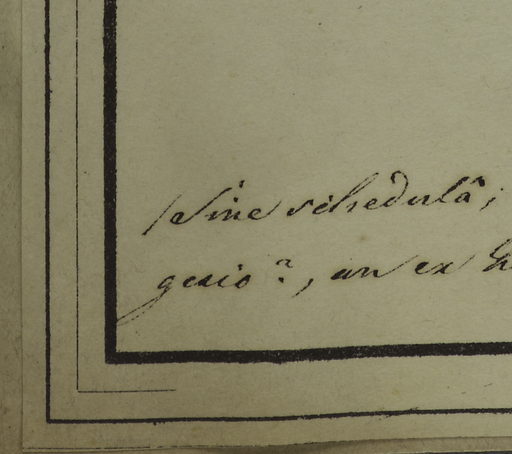 Sine schedulâ;
gesio?, an ex